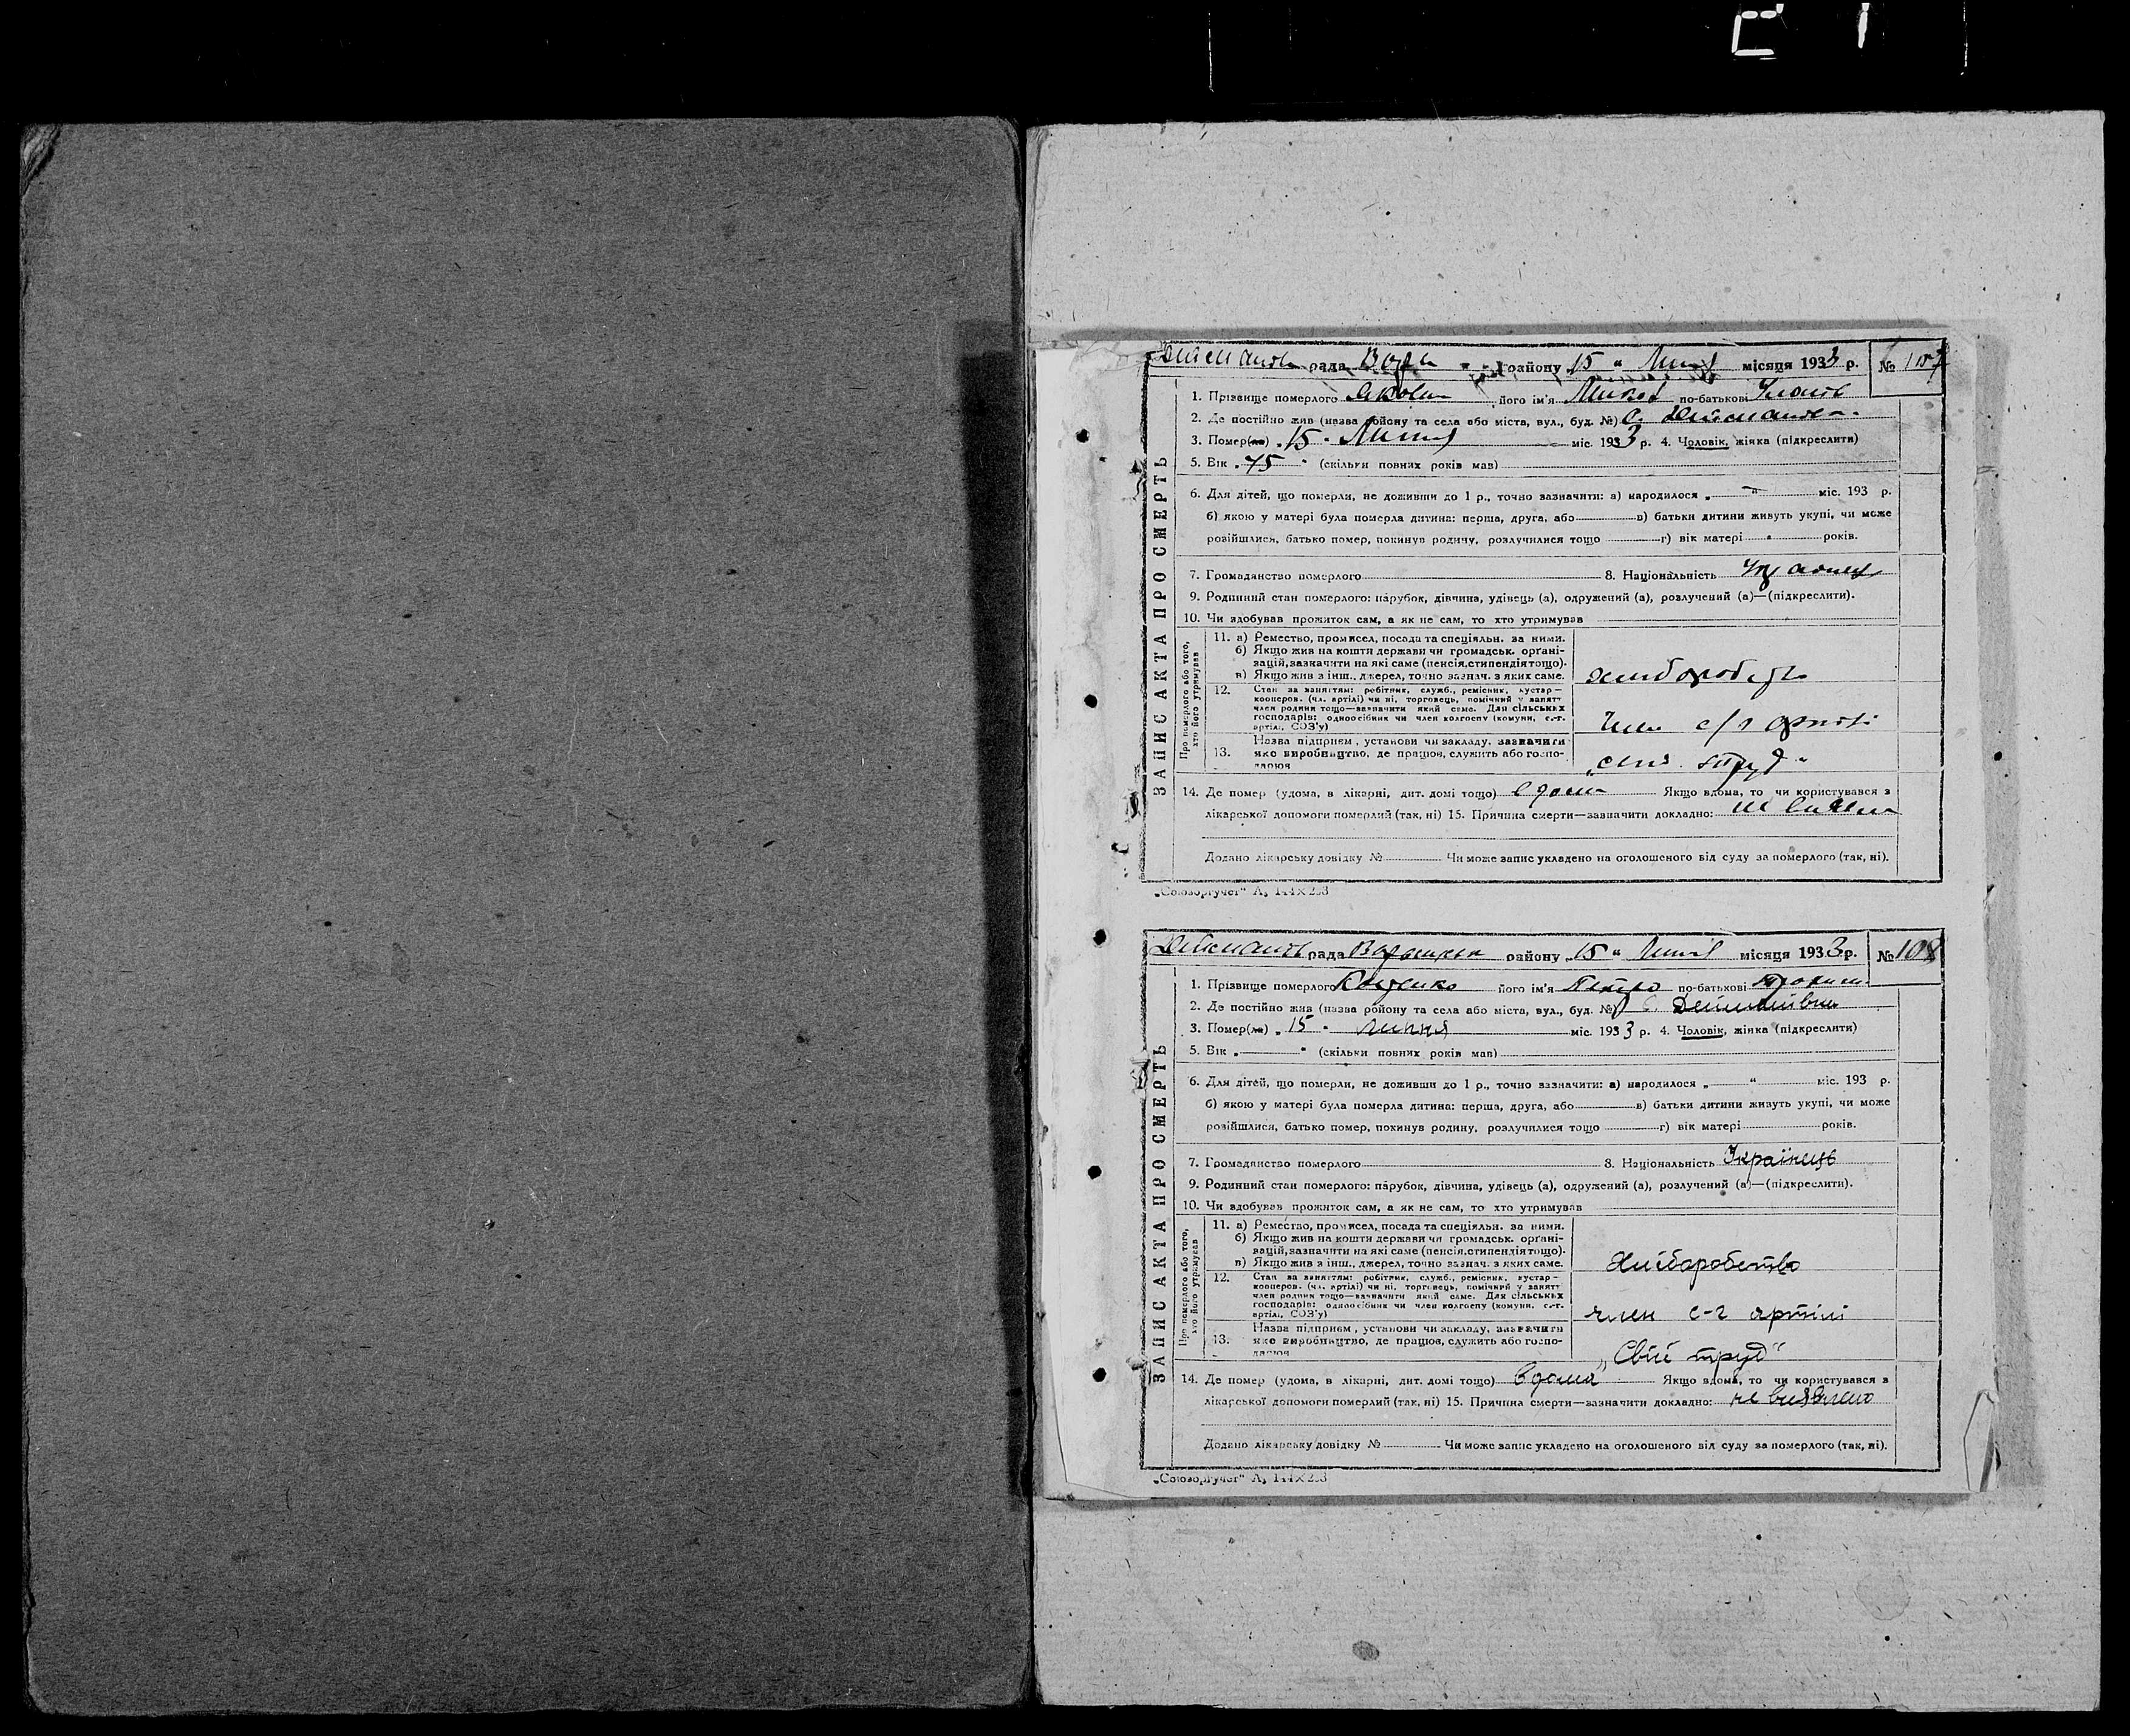 рада району „15“ місяця 1933 р. № 107
1. Прізвище померлого його ім'я по-батькові
2. Де постійно жив (назва району та села або міста, вул., буд. №) с.
3. Помер(ла) „15“ Липня міс. 1933 р. 4. Чоловік, жінка (підкреслити)
5. Вік „75“ (скільки повних років мав)
6. Для дітей, що померли, не доживши до 1 р., точно зазначити: а) народилося „ “ міс. 193 р.
б) якою у матері була померла дитина: перша, друга, або в) батьки дитини живуть укупі, чи може
розійшлися, батько помер, покинув родину, розлучилися тощо г) вік матері років.
7. Громадянство померлого 8. Національність
9. Родинний стан померлого: парубок, дівчина, удівець (а), одружений (а), розлучений (а)—(підкреслити).
10. Чи здобував прожиток сам, а як не сам, то хто утримував
ЗАПИС АКТА ПРО СМЕРТЬ
Про померлого або того, хто його утримував
11. а) Ремество, промисел, посада та спеціяльн. за ними.
б) Якщо жив на кошти держави чи громадськ. органі-
зацій, зазначити на які саме (пенсія, стипендія тощо).
в) Якщо жив з інш., джерел, точно зазнач. з яких саме.
12. Стан за заняттям: робітник, служб., ремісник, кустар-
кооперов. (чл. артілі) чи ні, торговець, помічний у занятт
член родини тощо—зазначити який саме. Для сільських
господарів: одноосібник чи член колгоспу (комуни, с.-г.
артілі, СОЗ'у)
член с/г артілі
13. Назва підприєм., установи чи закладу, зазначити
яке виробництво, де працює, служить або госпо-
дарює
труд“
14. Де помер (удома, в лікарні, дит. домі тощо) вдома Якщо вдома, то чи користувався з
лікарської допомоги померлий (так, ні) 15. Причина смерти—зазначити докладно:
Додано лікарську довідку № Чи може запис укладено на оголошеного від суду за померлого (так, ні).
„Союзоргучет“
рада району „15“ місяця 1933 р. № 108
1. Прізвище померлого його ім'я Петро по-батькові
2. Де постійно жив (назва району та села або міста, вул., буд. №) с. Дейманівка
3. Помер(ла) „15“ липня міс. 1933 р. 4. Чоловік, жінка (підкреслити)
5. Вік „ “ (скільки повних років мав)
6. Для дітей, що померли, не доживши до 1 р., точно зазначити: а) народилося „ “ міс. 193 р.
б) якою у матері була померла дитина: перша, друга, або в) батьки дитини живуть укупі, чи може
розійшлися, батько помер, покинув родину, розлучилися тощо г) вік матері років.
7. Громадянство померлого 8. Національність Українець
9. Родинний стан померлого: парубок, дівчина, удівець (а), одружений (а), розлучений (а)—(підкреслити).
10. Чи здобував прожиток сам, а як не сам, то хто утримував
ЗАПИС АКТА ПРО СМЕРТЬ
Про померлого або того, хто його утримував
11. а) Ремество, промисел, посада та спеціяльн. за ними.
б) Якщо жив на кошти держави чи громадськ. органі-
зацій, зазначити на які саме (пенсія, стипендія тощо).
в) Якщо жив з інш., джерел, точно зазнач. з яких саме.
Хліборобство
12. Стан за заняттям: робітник, служб., ремісник, кустар-
кооперов. (чл. артілі) чи ні, торговець, помічний у занятт
член родини тощо—зазначити який саме. Для сільських
господарів: одноосібник чи член колгоспу (комуни, с.-г.
артілі, СОЗ'у)
член с-г артілі
13. Назва підприєм., установи чи закладу, зазначити
яке виробництво, де працює, служить або госпо-
дарює
„Свій труд“
14. Де помер (удома, в лікарні, дит. домі тощо) вдома Якщо вдома, то чи користувався з
лікарської допомоги померлий (так, ні) 15. Причина смерти—зазначити докладно: не виявлено
Додано лікарську довідку № Чи може запис укладено на оголошеного від суду за померлого (так, ні).
„Союзоргучет“